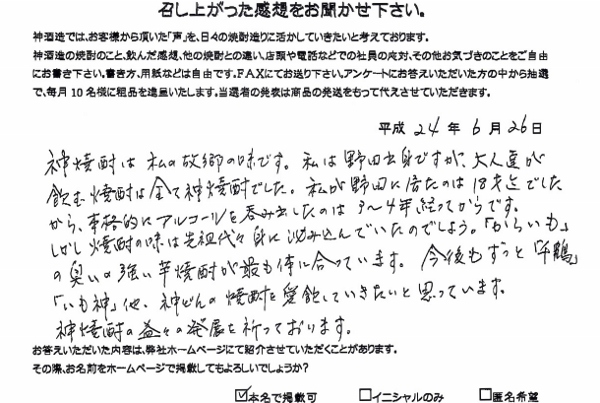 召し上がった感想をお聞かせ下さい。
神酒造では、お客様から頂いた「声」を、日々の焼酎造りに活かしていきたいと考えております。
神酒造の焼酎のこと、飲んだ感想、他の焼酎との違い、店頭や電話などでの社員の応対、その他お気づきのことをご自由
にお書き下さい。書き方、用紙などは自由です。FAXにてお送り下さい。アンケートにお答えいただいた方の中から抽選
で、毎月10名様に粗品を進呈いたします。当選者の発表は商品の発送をもって代えさせていただきます。
平成 24 年 6 月 26 日
神焼酎は私の故郷の味です。私は野田出身ですが、大人達が
飲む焼酎は全て神焼酎でした。私が野田に居たのは18才迄でした
から、本格的にアルコールを呑み出したのは3〜4年経ってからです。
しかし焼酎の味は先祖代々身に沁み込んでいたのでしょう。「からいも」
の臭いの強い芋焼酎が最も体に合っています。今後もずっと「千鶴」
「いも神」他、神どんの焼酎を愛飲していきたいと思っています。
神焼酎の益々の発展を祈っております。
お答えいただいた内容は、弊社ホームページにて紹介させていただくことがあります。
その際、お名前をホームページで掲載してもよろしいでしょうか?
☑本名で掲載可 □イニシャルのみ □匿名希望